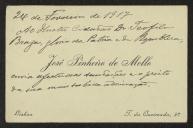 24 de Fevereiro de 1917
Ao Illustre Cidadão Dr. Teofilo
Braga, gloria da Patria e da Republica,
José Pinheiro de Mello
envia affectuosas saudações e o preito
da sua mais subida admiração.
Lisboa
T. da Queimada,